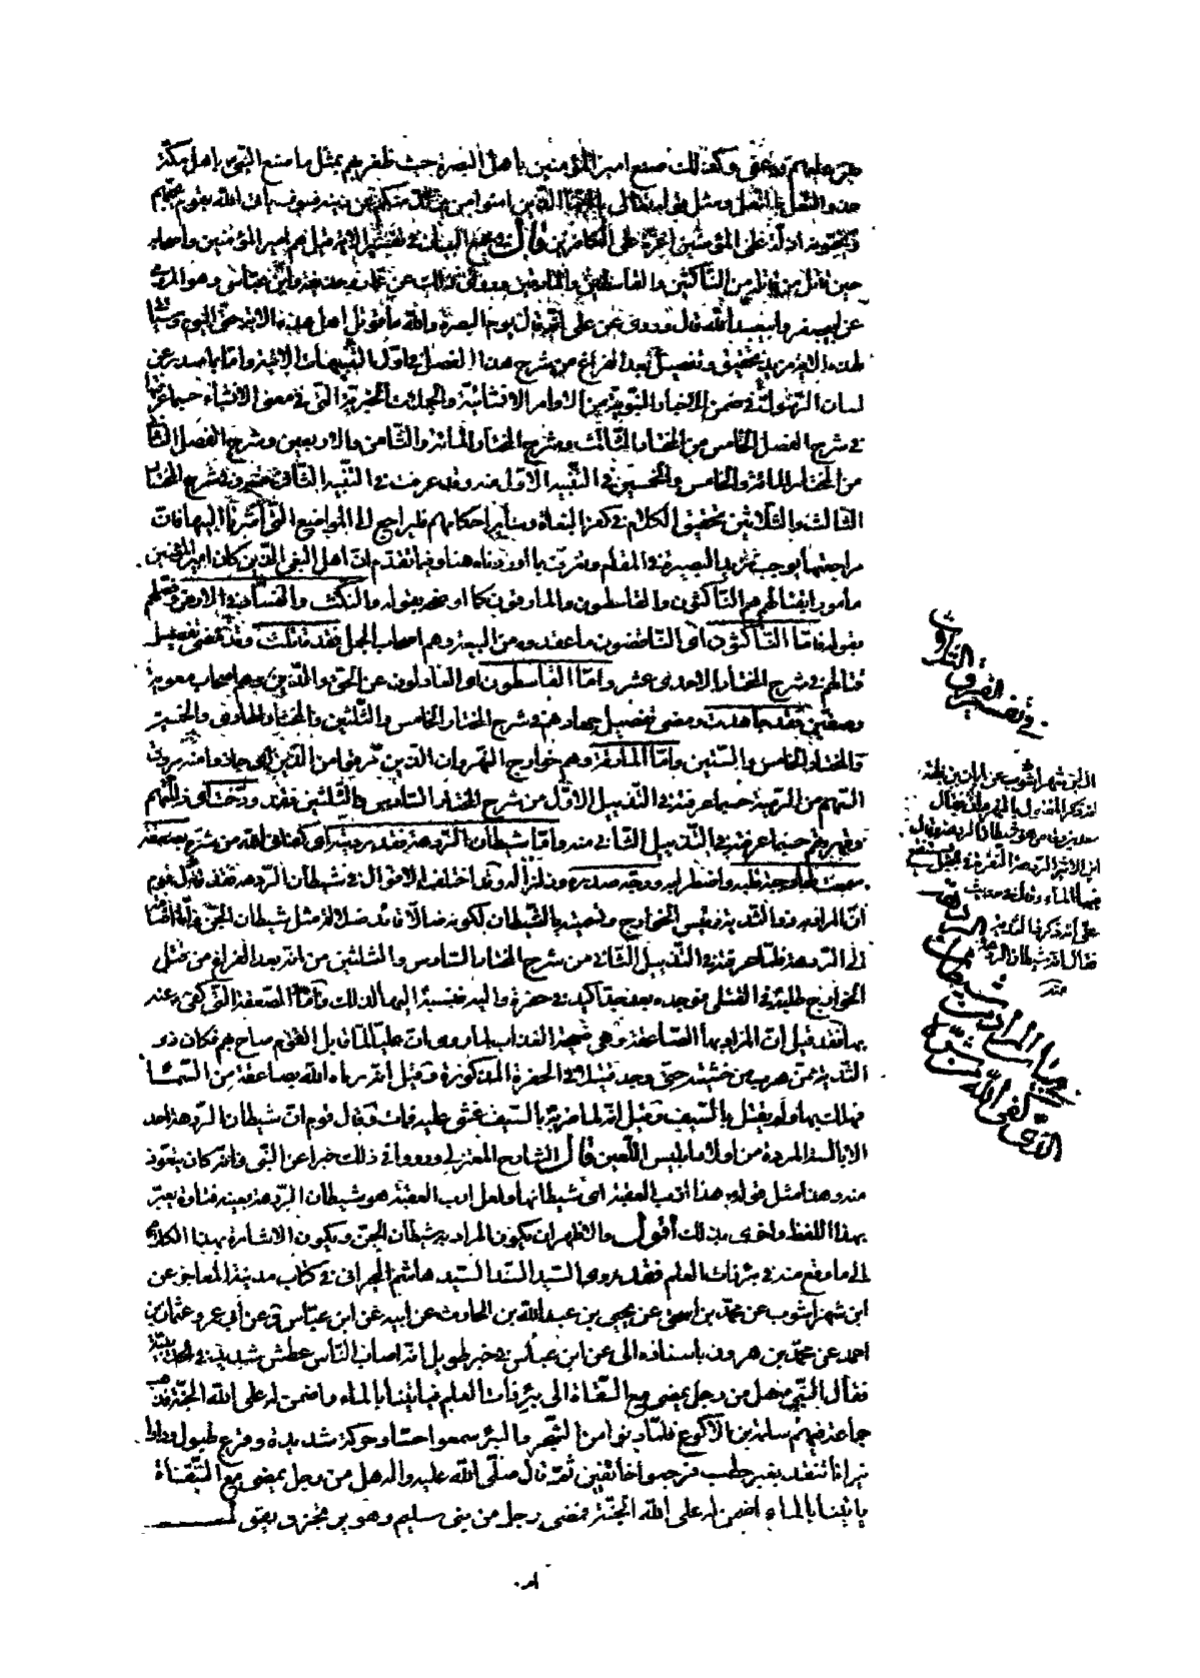 عليهم وعفى وكذلك صنع امير المؤمنين باهل البصرة حيث ظفر بهم بمثل ما صنع النبي باهل مكة
حذو النعل بالنعل ومثل قوله تعالى يا ايها الذين امنوا من يرتد منكم عن دينه فسوف ياتي الله بقوم يحبهم
ويحبونه اذلة على المؤمنين اعزة على الكافرين قال في مجمع البيان في تفسير الاية قيل هم امير المؤمنين واصحابه
حين قاتل من قاتله من الناكثين والقاسطين والمارقين وروى ذلك عن عمار وحذيفة وابن عباس وهو المروي
عن ابي جعفر وابي عبد الله قال وروى عن علي انه قال يوم البصرة والله ما قوتل اهل هذه الاية حتى اليوم
لهذه الاية مزيد تحقيق وتفصيل بعد الفراغ من شرح هذا الفصل في اول التنبيهات الاتية واما ما صدر عن
لسان الرسول في ضمن الاخبار النبوية من الاوامر الانشائية والجملات الخبرية التي في معنى الانشاء حسبما عرفتها
في شرح الفصل الخامس من المختار الثالث وشرح المختار المائة والثامن والاربعين وشرح الفصل الثاني
من المختار المائة والخامس والخمسين في التنبيه الاول منه وقد عرفت في التنبيه الثاني من شرح المختار
الثالث والثلاثين تحقيق الكلام في كفر البغاة وساير احكامهم فليراجع الى المواضع التي اشرنا اليها فان
مراجعتها يوجب مزيد البصيرة في المقام وعرفت بما اوردناه هنا وفيما تقدم ان اهل البغي الذين كان امير المؤمنين
مأمورا بقتالهم هم الناكثون والقاسطون والمارقون كما اوضحه بقوله والنكث والفساد في الارض وفصلهم
بقوله فاما الناكثون اى الناقضون ما عقدوه من البيعة وهم اصحاب الجمل فقد قاتلت وقد مضى تفصيل
قتالهم في شرح المختار الاحدى عشر واما القاسطون اى العادلون عن الحق والدين وهم اصحاب معوية
وصفين فقد جاهدت ومضى تفصيل جهادهم في شرح المختار الخامس والثلثين والمختار الحادي والخمسين
والمختار الخامس والستين واما المارقة وهم خوارج النهروان الذين مرقوا من الدين اى جازوا منه مروق
السهم من الرمية حسبما عرفته في التذييل الاول من شرح المختار السادس والثلثين فقد دوخت اى ذللتهم
وقهرتهم حسبما عرفته في التذييل الثاني منه واما شيطان الردهة فقد كفيته اى كفاني الله من شره بصعقة
سمعت لها وجبة قلبه واضطرابه ورجة صدره وزلزاله وقد اختلف الاقوال في شيطان الردهة فقد قال قوم
ان المراد به ذو الثدية رئيس الخوارج وتسميته بالشيطان لكونه ضالا قائد ضلالة مثل شيطان الجن واما اضافته
الى الردهة فلما عرفته في التذييل الثاني من شرح المختار السادس والثلثين من انه بعد الفراغ من قتل
الخوارج طلبه في القتلى فوجده بعد جد اكيد في حفرة دالية فنسبه اليها لذلك واما الصعقة التي كفى عنه
بها فقد قيل ان المراد بها الصاعقة وهي صيحة العذاب لما روى ان عليا لما قابل القوم صاح بهم فكان ذو
الثدية ممن هرب من صيحته حتى وجد قتيلا في الحفرة المذكورة وقيل انه رماه الله بصاعقة من السماء
فهلك بها ولم يقتل بالسيف وقيل انه لما ضربه بالسيف غشى عليه فمات وقال قوم ان شيطان الردهة احد
الابالسة المردة من اولاد ابليس اللعين قال الشارح المعتزلي ورووا في ذلك خبرا عن النبي وانه كان يتعوذ
منه وهذا مثل قوله هذا ازب العقبة اى شيطانها ولعل ازب العقبة هو شيطان الردهة بعينه فتارة يعبر
بهذا اللفظ واخرى بذلك اقول والاظهر ان يكون المراد به شيطان الجن ويكون الاشارة بهذا الكلام
الى ما وقع منه في بئر ذات العلم فقد روى السيد السند السيد هاشم البحراني في كتاب مدينة المعاجز عن
ابن شهراشوب عن محمد بن اسحق عن يحيى بن عبد الله بن الحارث عن ابيه عن ابن عباس وعن ابي عمرو عثمان بن
احمد عن محمد بن هرون باسناده الى عن ابن عباس في خبر طويل انه اصاب الناس عطش شديد في الحديبية
فقال النبي هل من رجل يمضي مع السقاة الى بئر ذات العلم فياتينا بالماء واضمن له على الله الجنة فذهب
جماعة فيهم سلمة بن الاكوع فلما دنوا من الشجر والبئر سمعوا حسا وحركة شديدة وقرع طبول وراوا
نيرانا تتقد بغير حطب فرجعوا خائفين ثم قال صلى الله عليه واله هل من رجل يمضي مع السقاة
ياتينا بالماء اضمن له على الله الجنة فمضى رجل من بني سليم وهو يرتجز ويقول
في تفسير الفرق
ابن شهراشوب عن
على انه ذكر
فقال انه شيطان الردهة
منه
المراد من شيطان الردهة
الذي كفى الله